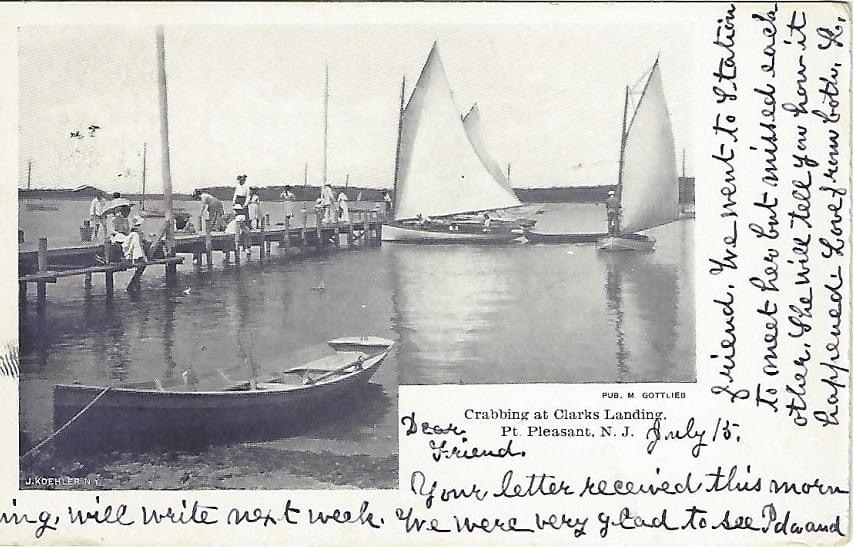 PUB. M GOTTLIEB
Crabbing at Clarks Landing.
Pt. Pleasant, N. J.
July 15.
Dear
Friend.
Your letter received this morn
ing, will write next week. We were very glad to see Ida and
friend. We went to Station
to meet her but missed each
other. She will tell you how it
happened. Love from both. L,
J. KOEHLER N.Y.